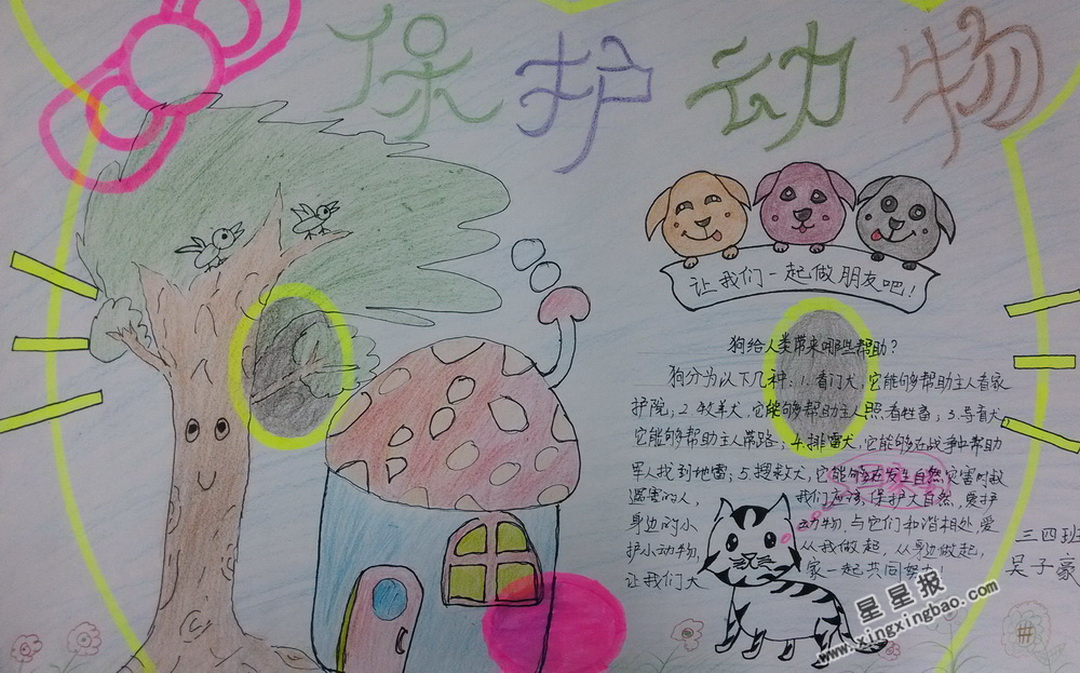 保护动物
让我们一起做朋友吧！
狗给人类带来哪些帮助？
狗分为以下几种：1.看门犬，它能够帮助主人看家
护院；2.牧羊犬，它能够帮助主人照看牲畜；3.导盲犬
它能够帮助主人带路；4.排雷犬，它能够在战争中帮助
军人找到地雷；5.搜救犬，它能够在发生自然灾害时救
遇害的人，我们应该保护大自然，爱护
身边的小动物，与它们和谐相处，爱
护小动物，从我做起，从身边做起，
让我们大家一起共同努力！
三四班
吴子豪
星星报
www.xingxingbao.com